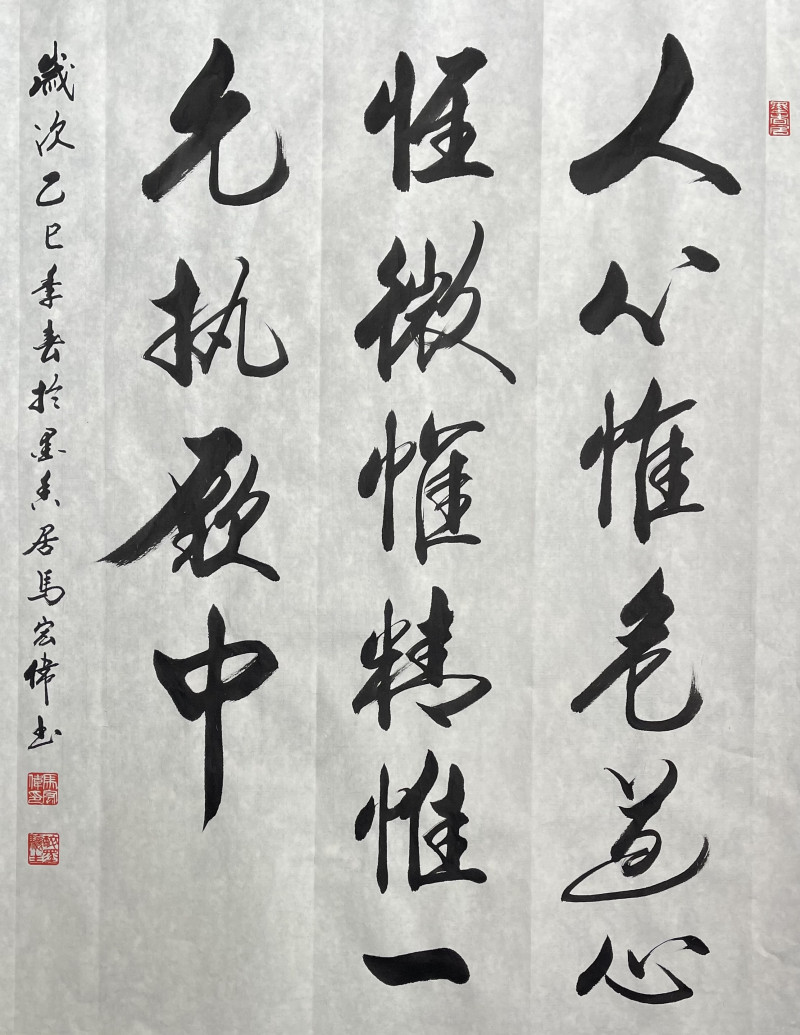 人心惟危道心
惟微惟精惟一
允执厥中
歲次乙巳季春於墨香居馬宏偉书